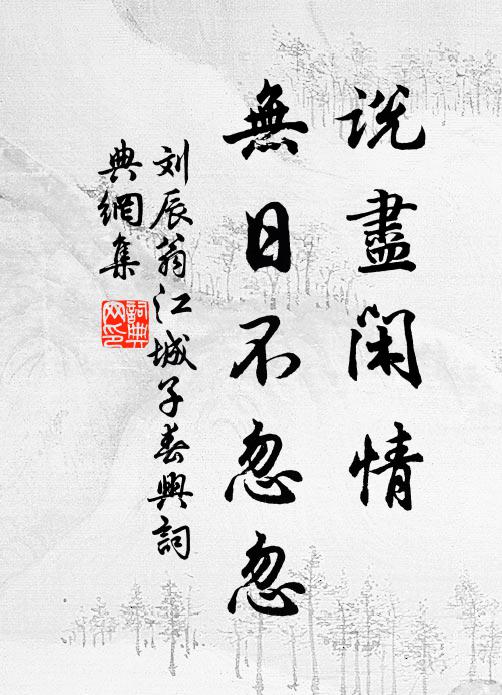 說盡閑情
無日不忽忽
刘辰翁江城子春興詞
典網集
詞典
网印